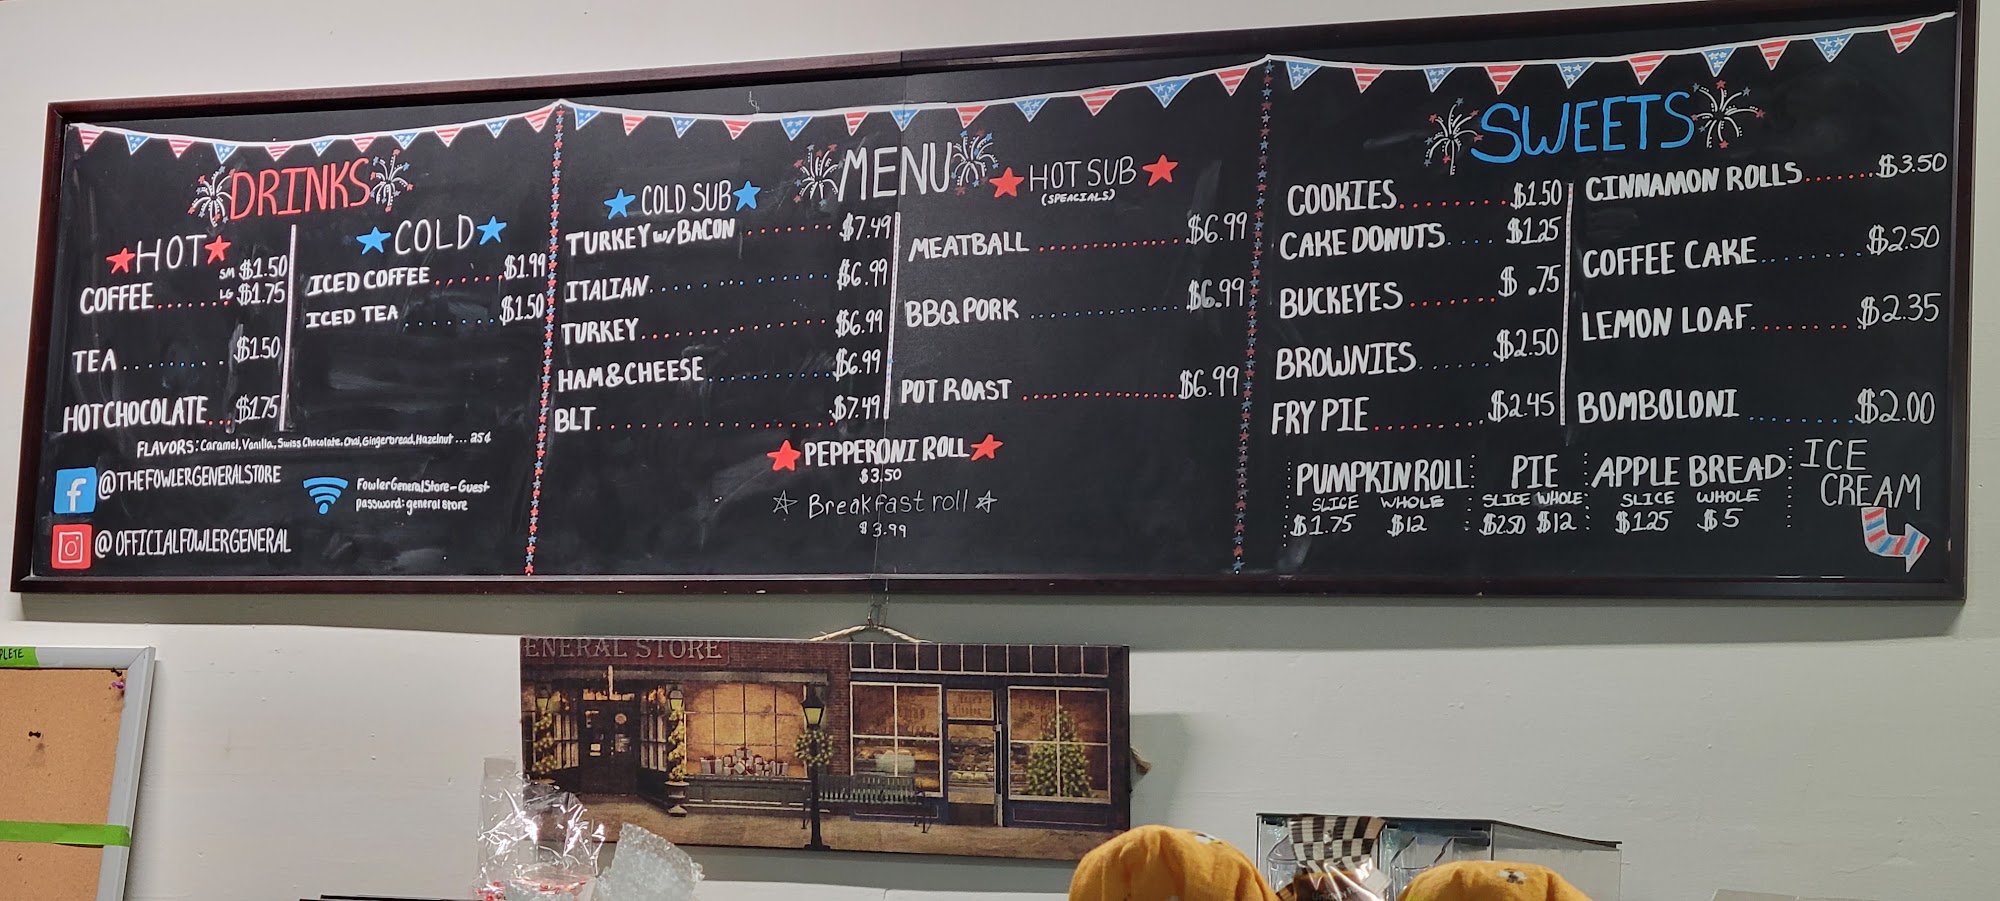 DRINKS
HOT
COFFEE...... SM $1.50
LG $1.75
TEA........ $1.50
HOT CHOCOLATE... $1.75
COLD
ICED COFFEE ....... $1.99
ICED TEA ........ $1.50
FLAVORS: Caramel, Vanilla, Swiss Chocolate, Chai, Gingerbread, Hazelnut ... 25¢
@THEFOWLERGENERALSTORE
@OFFICIALFOWLERGENERAL
FowlerGeneralStore-Guest
password: general store
MENU
COLD SUB
TURKEY w/BACON ....... $7.49
ITALIAN............... $6.99
TURKEY................ $6.99
HAM&CHEESE........... $6.99
BLT..................... $7.49
HOT SUB
(SPEACIALS)
MEATBALL ............... $6.99
BBQ PORK ................ $6.99
POT ROAST ................ $6.99
PEPPERONI ROLL
$3.50
Breakfast roll
$3.99
SWEETS
COOKIES......... $1.50
CAKE DONUTS.... $1.25
BUCKEYES....... $ .75
BROWNIES...... $2.50
FRY PIE......... $2.45
CINNAMON ROLLS....... $3.50
COFFEE CAKE......... $2.50
LEMON LOAF......... $2.35
BOMBOLONI ......... $2.00
PUMPKIN ROLL
SLICE WHOLE
$1.75 $12
PIE
SLICE WHOLE
$2.50 $12
APPLE BREAD
SLICE WHOLE
$1.25 $5
ICE
CREAM
ENERAL STORE
PLETE